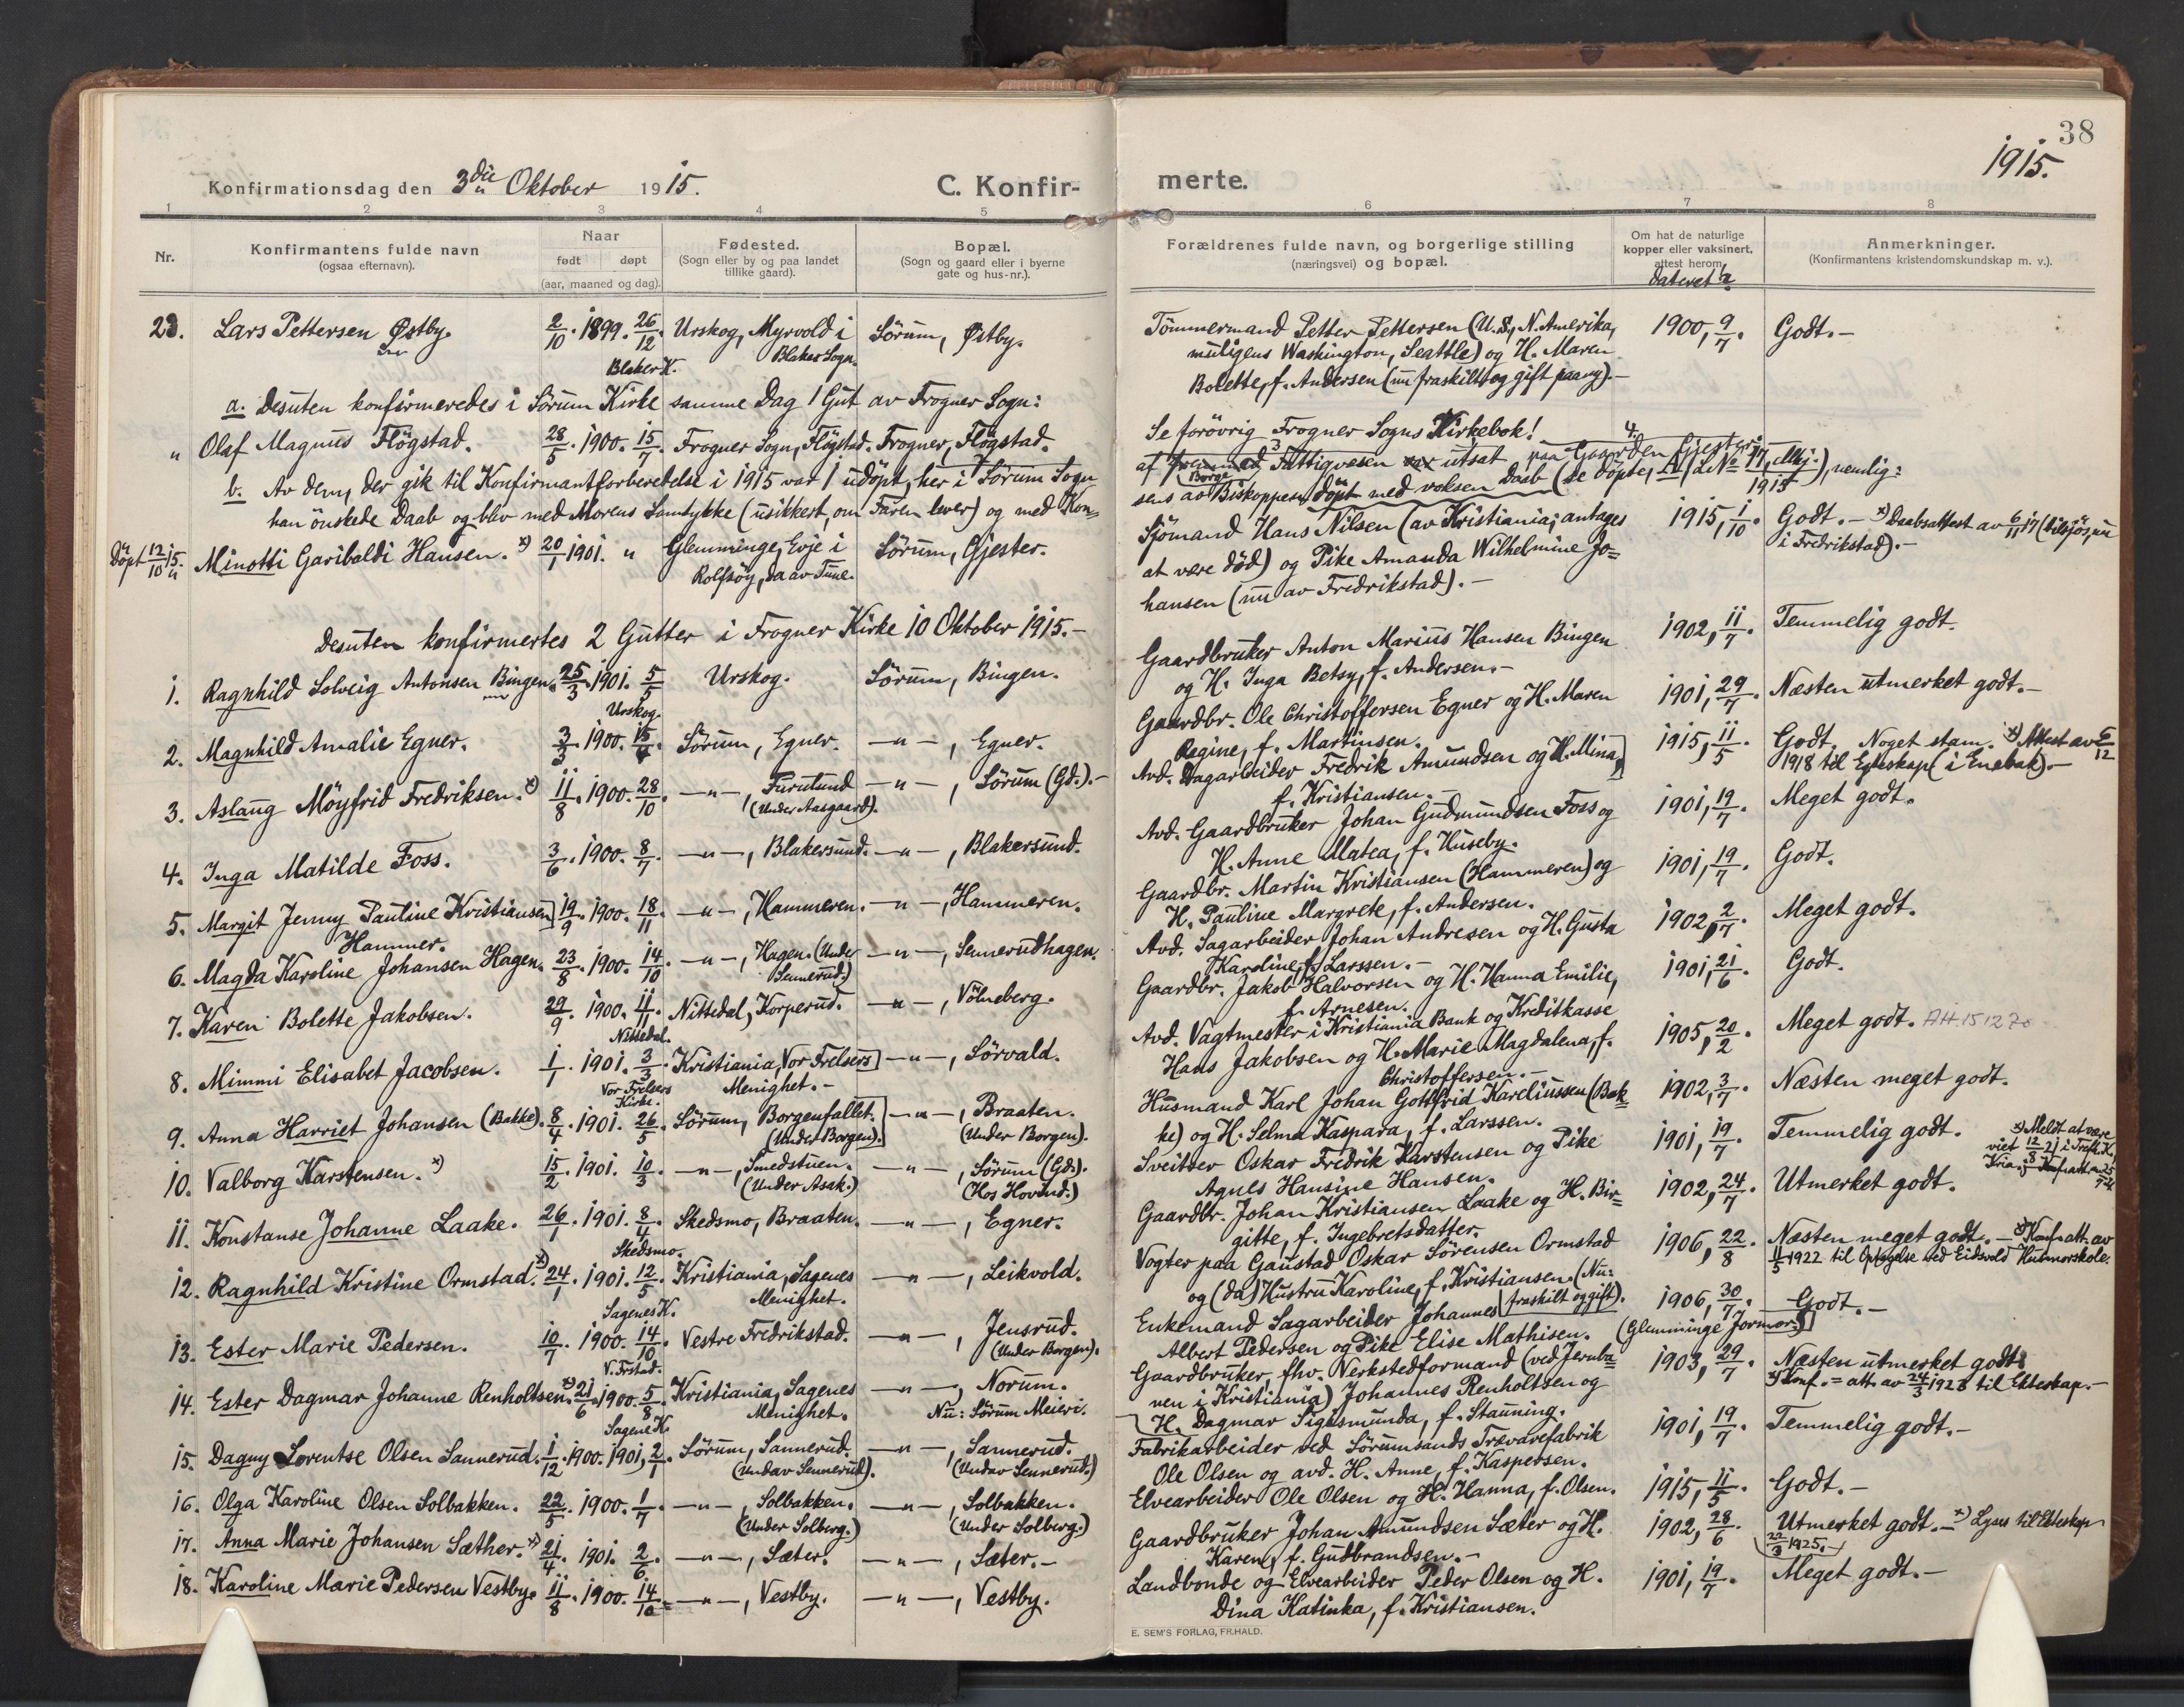 38
1915.
Konfirmationsdag den 3die Oktober 1915. C. Konfirmerte.
1 2 3 4 5 6 7 8
Nr. Konfirmantens fulde navn (ogsaa efternavn). Naar født døpt (aar, maaned og dag). Fødested. (Sogn eller by og paa landet tillike gaard). Bopæl. (Sogn og gaard eller i byerne gate og hus-nr.). Forældrenes fulde navn, og borgerlige stilling (næringsvei) og bopæl. Om hat de naturlige kopper eller vaksinert, attest herom dateret Anmerkninger. (Konfirmantens kristendomskundskap m. v.).
23. Lars Pettersen Østby. 2/10. 1899. 26/12 Urskog, Myrvold i Sörum, Østby. Tömmermand Petter Pettersen (U.S., N. Amerika, 1900, 9/7. Godt.-
Blaker K. Blaker Sogn. muligens Washington, Seattle) og H. Maren
Bolette, f. Andersen (nu fraskilt og gift paany).-
a. Desuten konfirmeredes i Sörum Kirke samme Dag 1 Gut av Frogner Sogn:
" Olaf Magnus Flögstad. 28/5. 1900. 15/7. Frogner Sogn, Flögstad. Frogner, Flögstad. Se forövrig Frogner Sogns Kirkebok!
b. Av dem, der gik til Konfirmantforberedelse i 1915 var 1 udöpt, her i Sörum Sogn af fremmed Fattigvæsen utsat paa Gaarden Gjester.
han önskede Daab og blev med Morens Samtykke (usikkert, om Faren lever) og med Kon= sens av Biskoppen döpt med voksen Daab (se döpte, 1915), nemlig:
Döpt 12/10 15. Minotti Garibaldi Hansen. *) 20/1 1901. " Glemminge, Evje i Sörum, Gjester. Sjömand Hans Nilsen (av Kristiania; antages 1915, 1/10. Godt.- *) Daabsattest av 6/11 17 (tilsjös, nu
Rolfsöy, da av Tune. at være död) og Pike Amanda Wilhelmine Jo= i Fredrikstad).-
hansen (nu av Fredrikstad).-
Desuten konfirmertes 2 Gutter i Frogner Kirke 10 Oktober 1915.-
1. Ragnhild Solveig Antonsen Bingen. 25/3. 1901. 5/5 Urskog. Sörum, Bingen. Gaardbruker Anton Marius Hansen Bingen 1902, 11/7. Temmelig godt.
Urskog. og H. Inga Betsy, f. Andersen.-
2. Magnhild Amalie Egner. 3/3. 1900. 15/4. Sörum, Egner. -"-, Egner. Gaardbr. Ole Christoffersen Egner og H. Maren 1901, 29/7. Næsten utmerket godt.-
Regine, f. Martinsen.
3. Aslaug Möyfrid Fredriksen. *) 11/8. 1900. 28/10. -"-, Furulund -"-, Sörum (Gd.).- Avd. Dagarbeider Fredrik Amundsen og H. Mina, 1915, 11/5. Godt. Noget stam. *) Attest av 5/12
(Under Aasgaard). f. Kristiansen.- 1918 til Egteskap (i Enebak).-
4. Inga Matilde Foss. 3/6. 1900. 8/7. -"-, Blakersund. -"-, Blakersund. Avd. Gaardbruker Johan Gudmundsen Foss og 1901, 19/7. Meget godt.
H. Anne Matea, f. Huseby.
5. Margit Jenny Pauline Kristiansen 19/9. 1900. 18/11. -"-, Hammeren. -"-, Hammeren. Gaardbr. Martin Kristiansen (Hammeren) og 1901, 19/7. Godt.
Hammer. H. Pauline Margrete, f. Andersen.
6. Magda Karoline Johansen Hagen. 23/8. 1900. 14/10. -"-, Hagen. (Under -"-, Sennerudhagen. Avd. Sagarbeider Johan Andresen og H. Gusta 1902, 2/7. Meget godt.
Sennerud.) Karoline, f. Larssen.-
7. Karen Bolette Jakobsen. 29/9. 1900. 11/11. Nittedal, Korperud. -"-, Völneberg. Gaardbr. Jakob Halvorsen og H. Hanna Emilie, 1901, 21/6. Godt.
Nittedal. f. Arnesen.
8. Mimmi Elisabet Jacobsen. 1/1. 1901. 3/3. Kristiania, Vor Frelsers -"-, Sörvald. Avd. Vagtmester i Kristiania Bank og Kreditkasse 1905, 20/2. Meget godt. AH 151270
Vor Frelsers Kirke. Menighet.- Hans Jakobsen og H. Marie Magdalena, f.
Christoffersen.-
9. Anna Harriet Johansen (Bakke). 8/4. 1901. 26/5. Sörum, Borgenfallet. -"-, Braaten. Husmand Karl Johan Gottfrid Kareliussen (Bak= 1902, 3/7. Næsten meget godt.
(Under Borgen). (Under Borgen). ke) og H. Selma Kaspara, f. Larssen.
10. Valborg Karstensen. *) 15/2. 1901. 10/3. -"-, Smedstuen. -"-, Sörum (Gd.). Sveitser Oskar Fredrik Karstensen og Pike 1901, 19/7. Temmelig godt. *) Meldt at være
(Under Asak.) (Hos Hovind.) Agnes Hansine Hansen. viet 12/8 21 i Trefk. K, Kria.
11. Konstanse Johanne Laake. 26/1. 1901. 8/4. Skedsmo, Braaten. -"-, Egner. Gaardbr. Johan Kristiansen Laake og H. Bir= 1902, 24/7. Utmerket godt.
Skedsmo. gitte, f. Ingebretsdatter.
12. Ragnhild Kristine Ormstad. *) 24/1. 1901. 12/5. Kristiania, Sagenes -"-, Leikvold. Vogter paa Gaustad Oskar Sörensen Ormstad 1906, 22/8. Næsten meget godt.- *) Konf. att. av
Sagenes K. Menighet. og (da) Hustru Karoline, f. Kristiansen. (Nu: fraskilt og gift). 11/5 1922 til Optagelse ved Eidsvold Husmorskole.
13. Ester Marie Pedersen. 10/7. 1900. 14/10. Vestre Fredrikstad. -"-, Jensrud. Enkemand Sagarbeider Johannes 1906, 30/7. Godt.-
V. Frstad. (Under Borgen). Albert Pedersen og Pike Elise Mathisen. (Glemminge Jormor.)
14. Ester Dagmar Johanne Renholtsen. *) 21/6. 1900. 5/8. Kristiania, Sagenes -"-, Norum. Gaardbruker, fhv. Verkstedformand (ved Jernba= 1903, 29/7. Næsten utmerket godt.
Sagene K. Menighet. Nu: Sörum Meieri. nen i Kristiania) Johannes Renholtsen og *) Konf.= att. av 24/3 1928 til Ekteskap.-
H. Dagmar Sigismunda, f. Stauning.
15. Dagny Lorentse Olsen Sannerud. 1/12. 1900. 1901, 2/1. Sörum, Sannerud. -"-, Sannerud. Fabrikarbeider ved Sörumsands Trævarefabrik 1901, 19/7. Temmelig godt.-
(Undav Sennerud). (Undav Sennerud.) Ole Olsen og avd. H. Anne, f. Kaspersen.
16. Olga Karoline Olsen Solbakken. 22/5. 1900. 1/7. -"-, Solbakken. -"-, Solbakken. Elvearbeider Ole Olsen og H. Hanna, f. Olsen. 1915, 11/5. Godt.-
(Under Solberg.) (Under Solberg.)
17. Anna Marie Johansen Sæther. *) 21/4. 1901. 2/6. -"-, Sæter. -"-, Sæter.- Gaardbruker Johan Amundsen Sæter og H. 1902, 28/6. Utmerket godt.- *) Lysn. til Ekteskap
Karen, f. Gudbrandsen.- 22/3 1925.-
18. Karoline Marie Pedersen Vestby. 11/8. 1900. 14/10. -"-, Vestby. -"-, Vestby. Landbonde og Elvearbeider Peder Olsen og H. 1901, 19/7. Meget godt.-
Dina Katinka, f. Kristiansen.
E. SEM'S FORLAG, FR.HALD.